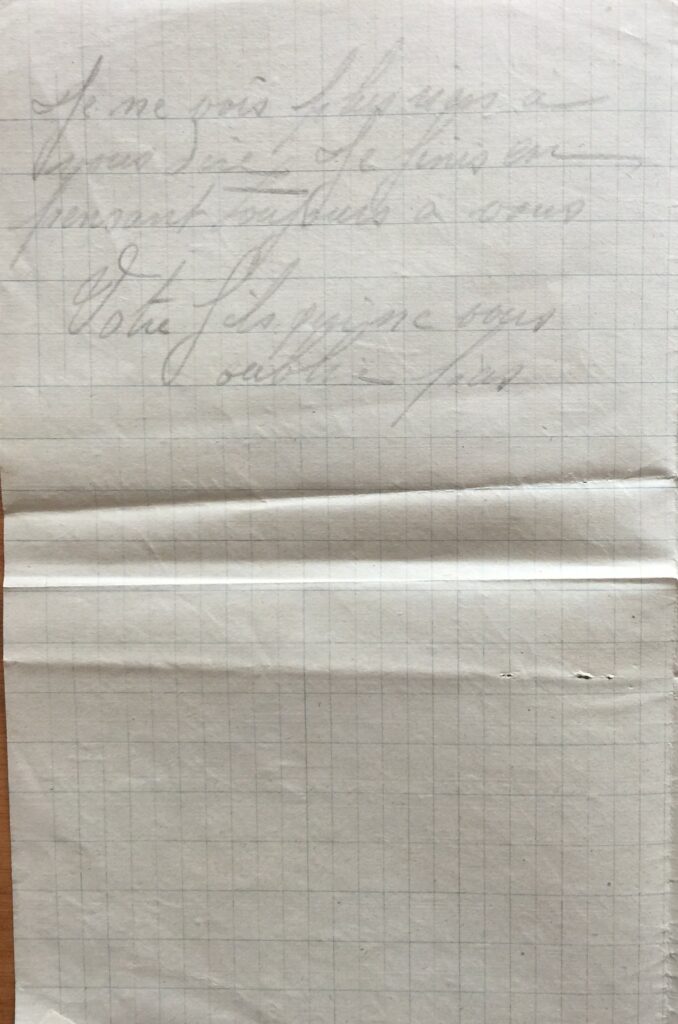 Je ne vois plus rien a
vous dire Je finis en
pensant toujours a vous
Votre fils qui ne vous
oublie pas